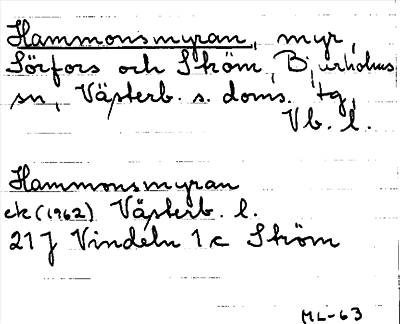 Hammonsmyran, myr,
Sörfors och Ström, Bjurholms
sn, Västerb. s. doms. tg,
Vb. l.
Hammonsmyran
ek (1962) Västerb. l.
21 J Vindeln 1 c Ström
ML-63